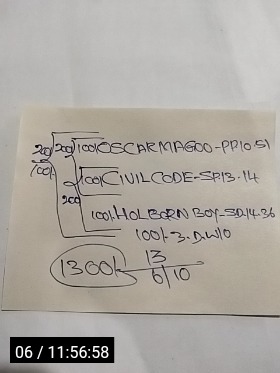 200 200 100/ OSCARMAGOO-PP10.51
100/-
100/ CIVILCODE-SP13.14
200
100/ HOLBORN BOY-SD.14-36
100/-3-D.W/O
1300/- 13
6/10
06 / 11:56:58